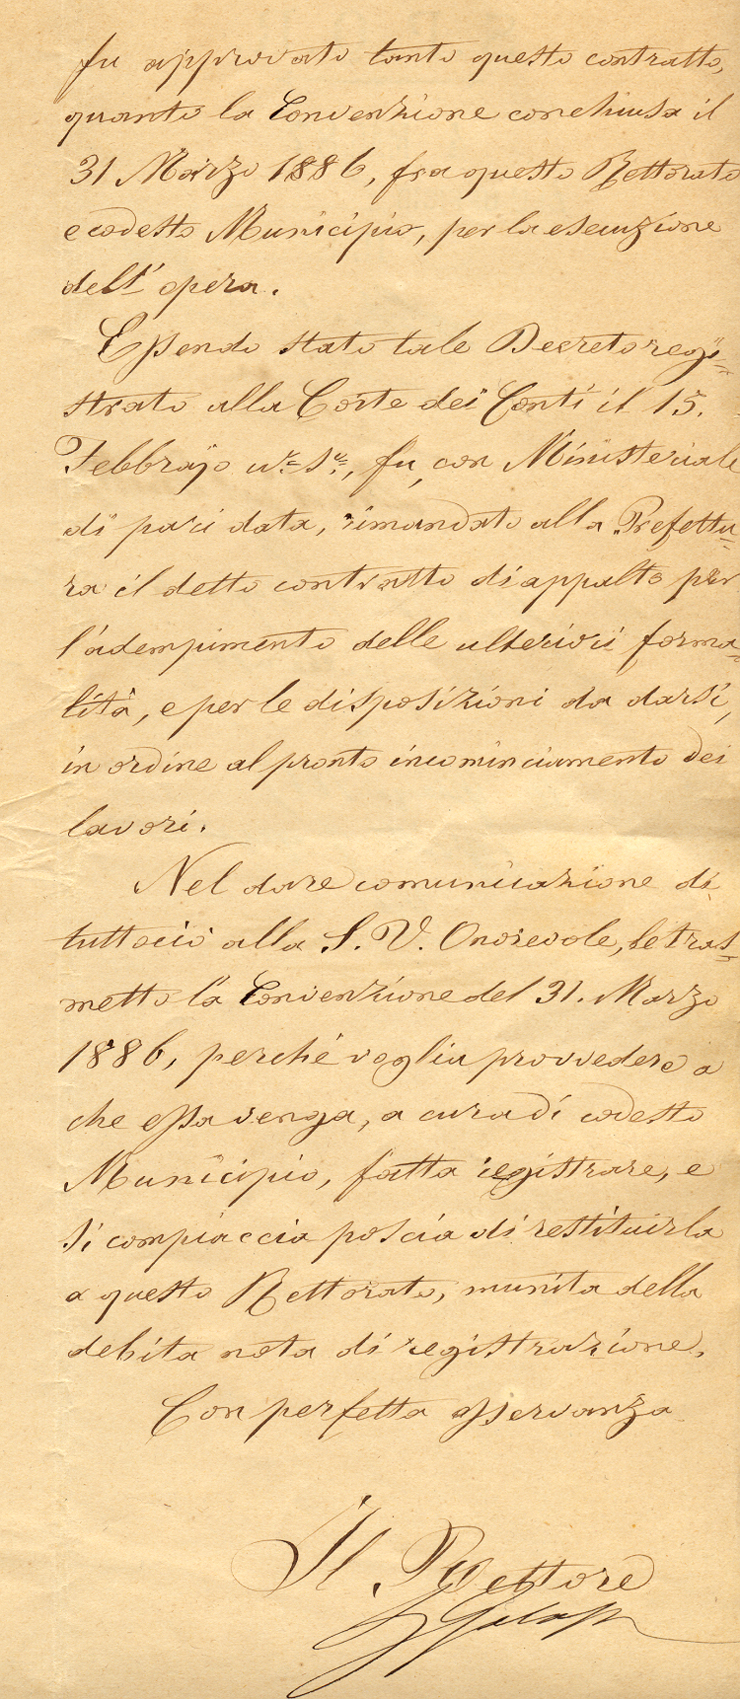 fu approvato tanto questo contratto,
quanto la Convenzione conchiusa il
31 Marzo 1886, fra questo Rettorato
e codesto Municipio, per la esecuzione
dell' opera.
Essendo stato tale Decreto regi=
strato alla Corte dei Conti il 15.
Febbrajo u.° s.°, fu, con Ministeriale
di pari data, rimandato alla Prefettu=
ra il detto contratto di appalto per
l'adempimento delle ulteriori forma=
lità, e per le disposizioni da darsi,
in ordine al pronto incominciamento dei
lavori.
Nel dare comunicazione di
tutto ciò alla S. V. Onorevole, le tras=
metto la Convenzione del 31. Marzo
1886, perché voglia provvedere a
che essa venga, a cura di codesto
Municipio, fatta registrare, e
si compiaccia poscia di restituirla
a questo Rettorato, munita della
debita nota di registrazione.
Con perfetta osservanza
Il Rettore